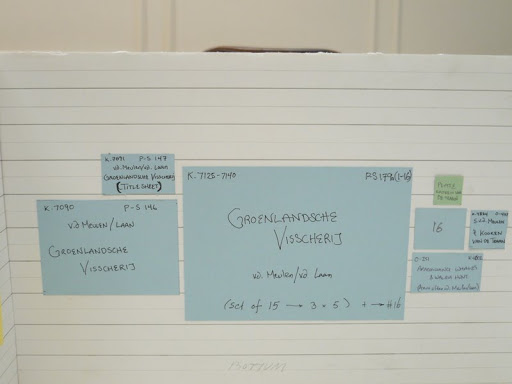 K.7091 P-S 147
v.d. Meulen/v.d. Laan
Groenlandsche Visscherij
(Title sheet)
K-7090 P-S 146
v.d Meulen/Laan
Groenlandsche
Visscherij
K. 7125-7140
Groenlandsche
Visscherij
v.d. Meulen/v.d Laan
(set of 15 → 3 x 5) + → #16
16
S.v.d Meulen
van de
3 whales